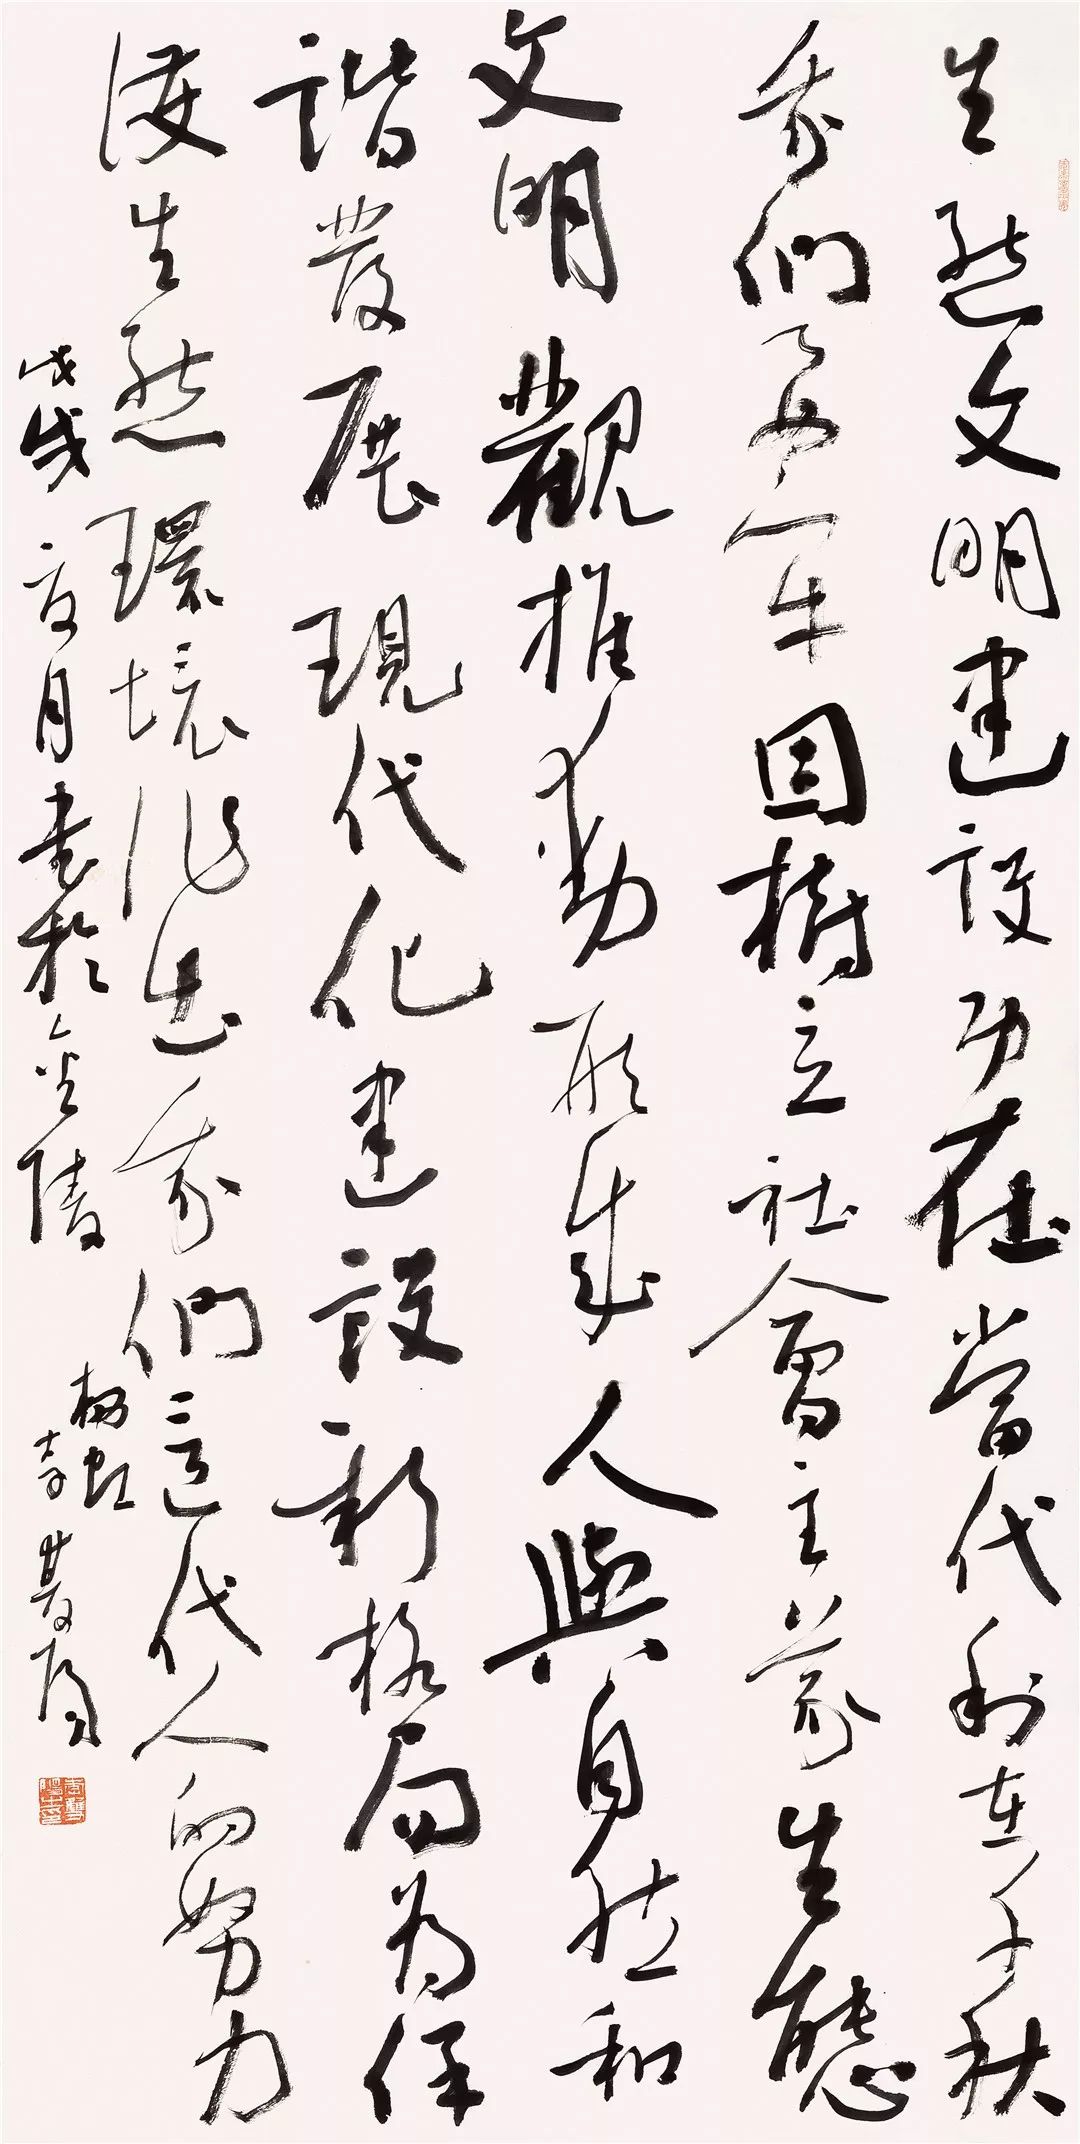 生態文明建設功在當代利在千秋
我們要牢固樹立社會主義生態
文明觀推動形成人與自然和
諧發展現代化建設新格局為保
護生態環境作出我們這代人的努力
戊戌夏月書於金陵
李雙陽